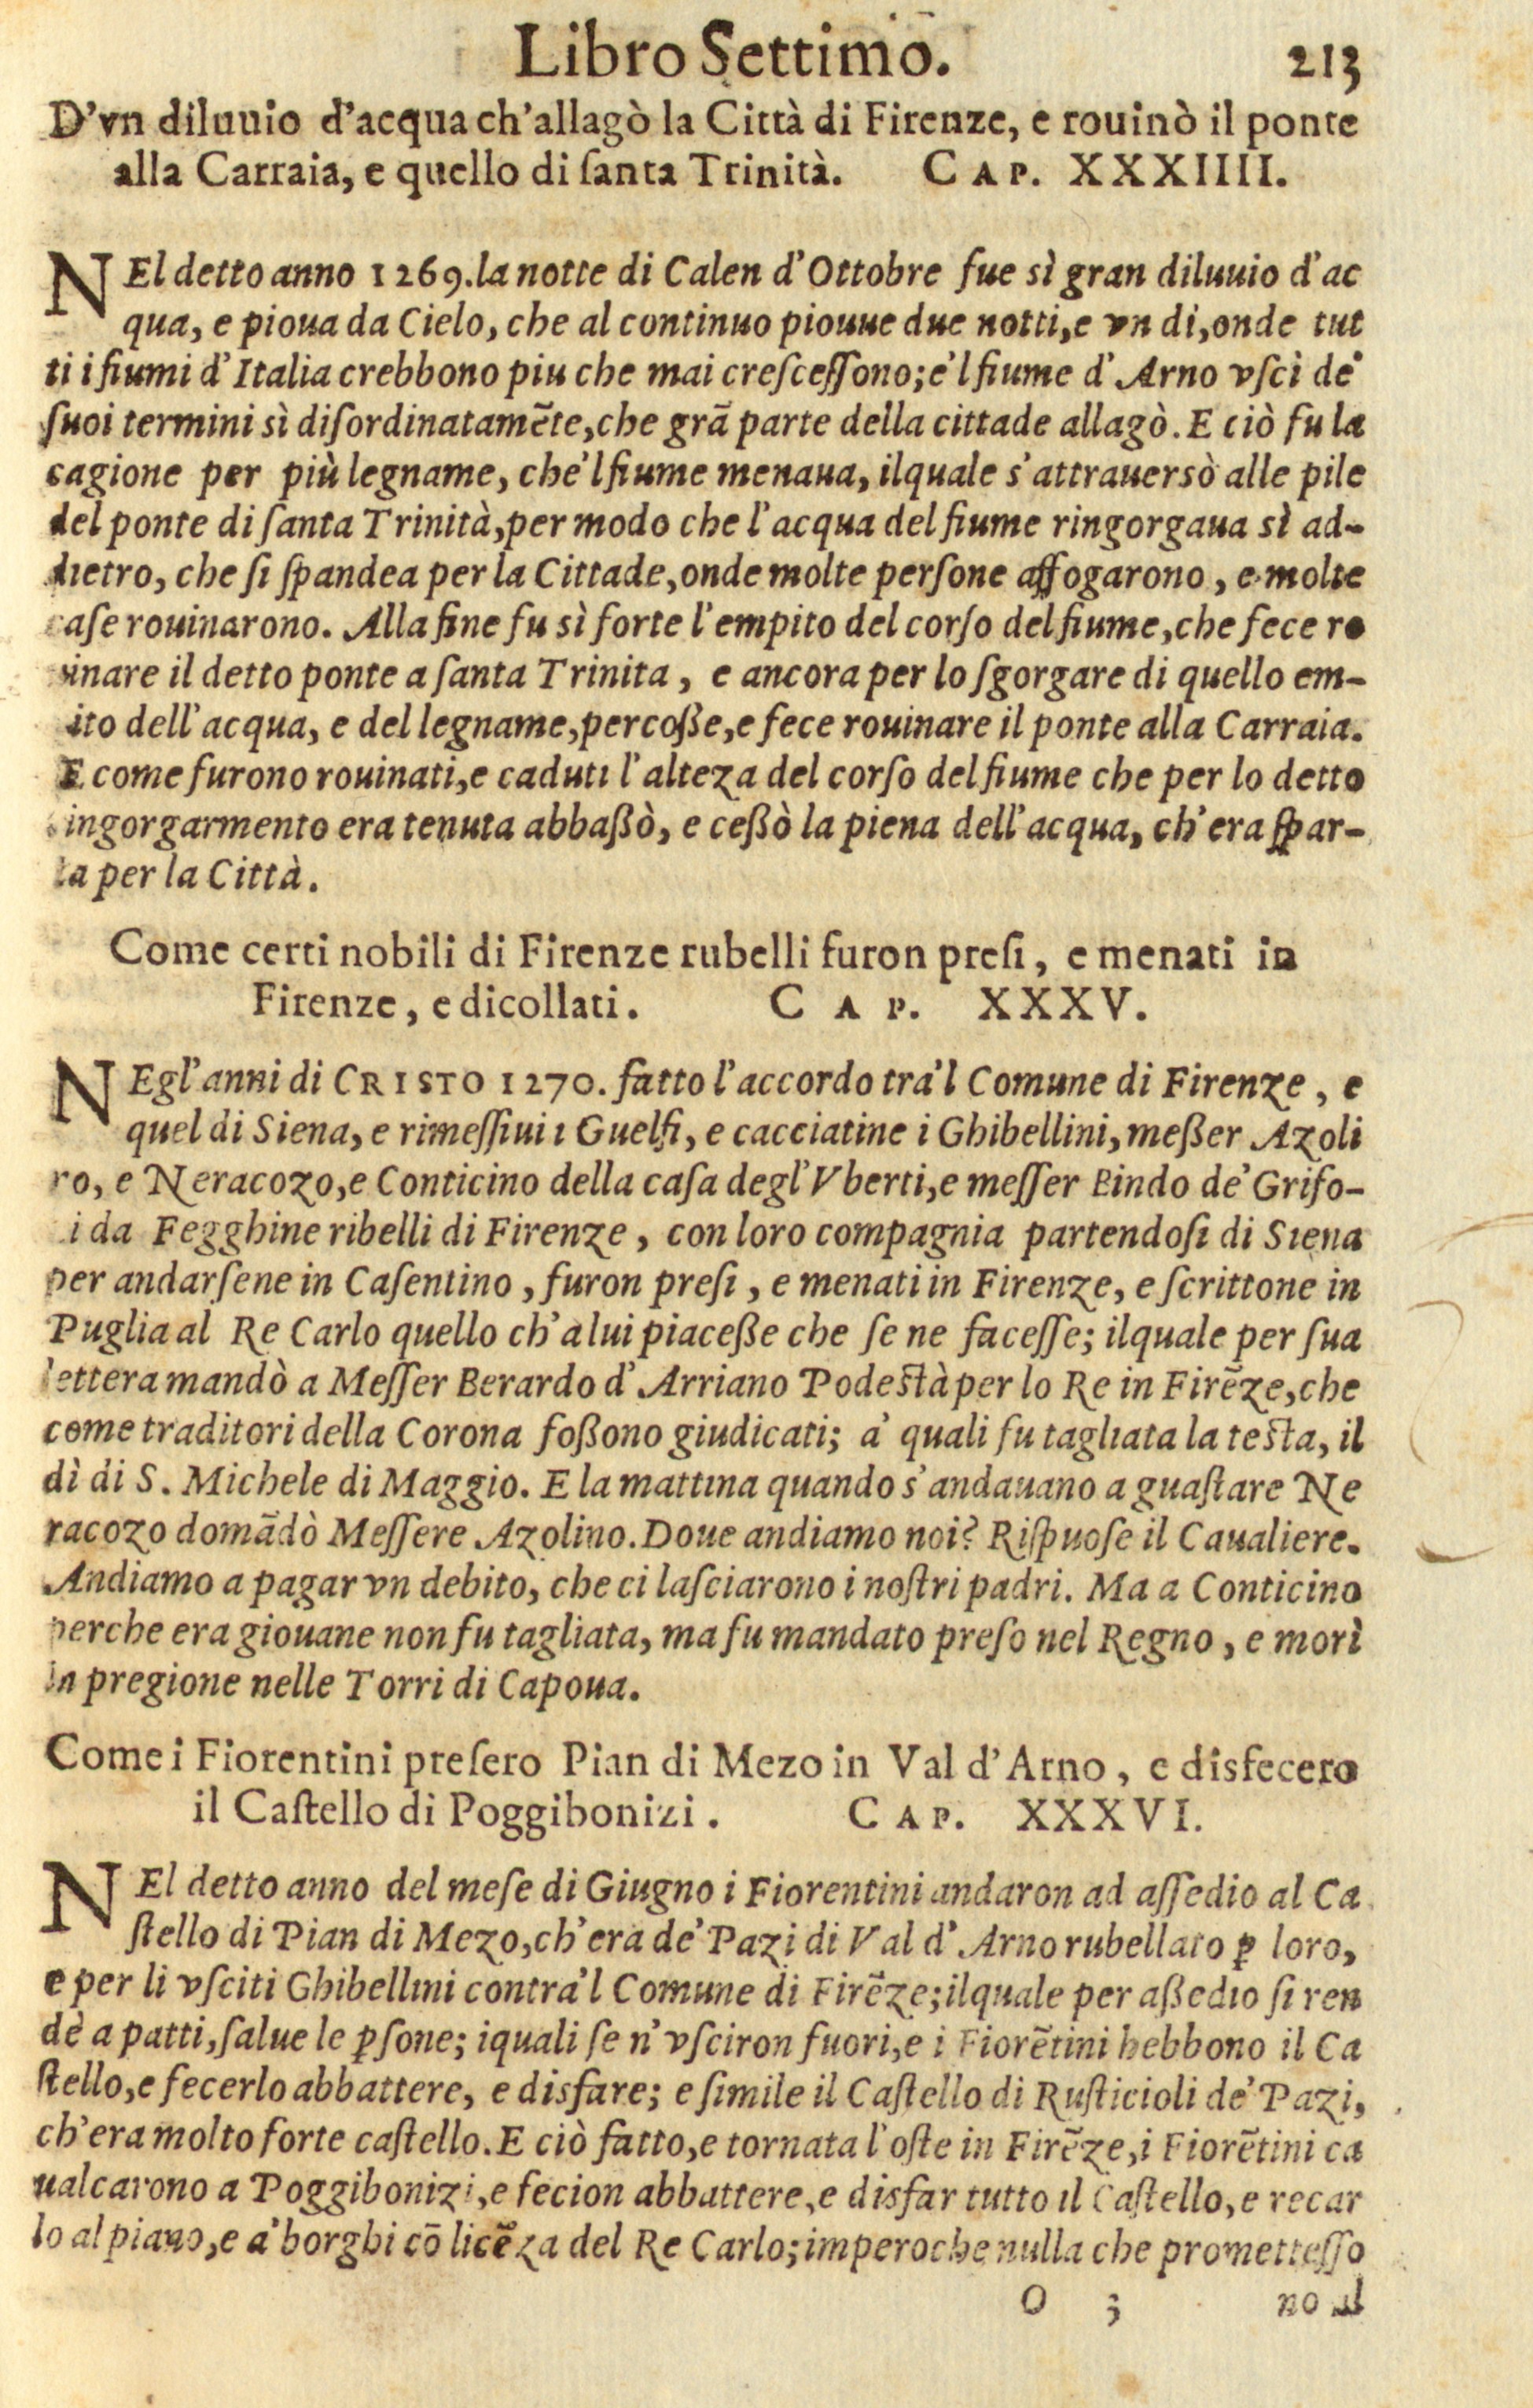 Libro Settimo. 213
D'vn diluuio d'acqua ch'allagò la Città di Firenze, e rouinò il ponte
alla Carraia, e quello di ſanta Trinità. CAP. XXXIIII.
NEl detto anno 1269. la notte di Calen d'Ottobre fue sì gran diluuio d'ac
qua, e pioua da Cielo, che al continuo piouue due notti, e vn di, onde tut
ti i fiumi d'Italia crebbono piu che mai creſceſſono; e'l fiume d'Arno vſcì de'
ſuoi termini sì diſordinatamēte, che grā parte della cittade allagò. E ciò fu la
cagione per più legname, che'l fiume menaua, ilquale s'attrauersò alle pile
del ponte di ſanta Trinità, per modo che l'acqua del fiume ringorgaua sì ad-
dietro, che ſi ſpandea per la Cittade, onde molte perſone affogarono, e molte
caſe rouinarono. Alla fine fu sì forte l'empito del corſo del fiume, che fece ro
uinare il detto ponte a ſanta Trinita, e ancora per lo ſgorgare di quello em-
ito dell'acqua, e del legname, percoße, e fece rouinare il ponte alla Carraia.
E come furono rouinati, e caduti l'alteza del corſo del fiume che per lo detto
ingorgarmento era tenuta abbaßò, e ceßò la piena dell'acqua, ch'era ſpar-
ta per la Città.
Come certi nobili di Firenze rubelli furon preſi, e menati in
Firenze, e dicollati. CAP. XXXV.
NEgl'anni di CRISTO 1270. fatto l'accordo tra'l Comune di Firenze, e
quel di Siena, e rimeſſiui i Guelfi, e cacciatine i Ghibellini, meßer Azoli
ro, e Neracozo, e Conticino della caſa degl'Vberti, e meſſer Bindo de' Grifo-
i da Fegghine ribelli di Firenze, con loro compagnia partendoſi di Siena
per andarſene in Caſentino, furon preſi, e menati in Firenze, e ſcrittone in
Puglia al Re Carlo quello ch'a lui piaceße che ſe ne faceſſe; ilquale per ſua
lettera mandò a Meſſer Berardo d'Arriano Podeſtà per lo Re in Firēze, che
come traditori della Corona foßono giudicati; a' quali fu tagliata la teſta, il
dì di S. Michele di Maggio. E la mattina quando s'andauano a guaſtare Ne
racozo domādò Meſſere Azolino. Doue andiamo noi? Riſpuoſe il Caualiere.
Andiamo a pagar vn debito, che ci laſciarono i noſtri padri. Ma a Conticino
perche era giouane non fu tagliata, ma fu mandato preſo nel Regno, e morì
in pregione nelle Torri di Capoua.
Come i Fiorentini preſero Pian di Mezo in Val d'Arno, e disfecero
il Caſtello di Poggibonizi. CAP. XXXVI.
NEl detto anno del meſe di Giugno i Fiorentini andaron ad aſſedio al Ca
ſtello di Pian di Mezo, ch'era de' Pazi di Val d'Arno rubellato ꝑ loro,
e per li vſciti Ghibellini contra'l Comune di Firēze; ilquale per aßedio ſi ren
dè a patti, ſalue le ꝑſone; iquali ſe n'vſciron fuori, e i Fiorētini hebbono il Ca
ſtello, e fecerlo abbattere, e disfare; e ſimile il Caſtello di Ruſticioli de' Pazi,
ch'era molto forte caſtello. E ciò fatto, e tornata l'oſte in Firēze, i Fiorētini ca
ualcarono a Poggibonizi, e fecion abbattere, e disfar tutto il Caſtello, e recar
lo al piano, e a' borghi cō licēza del Re Carlo; imperoche nulla che prometteſſo
O 3 no